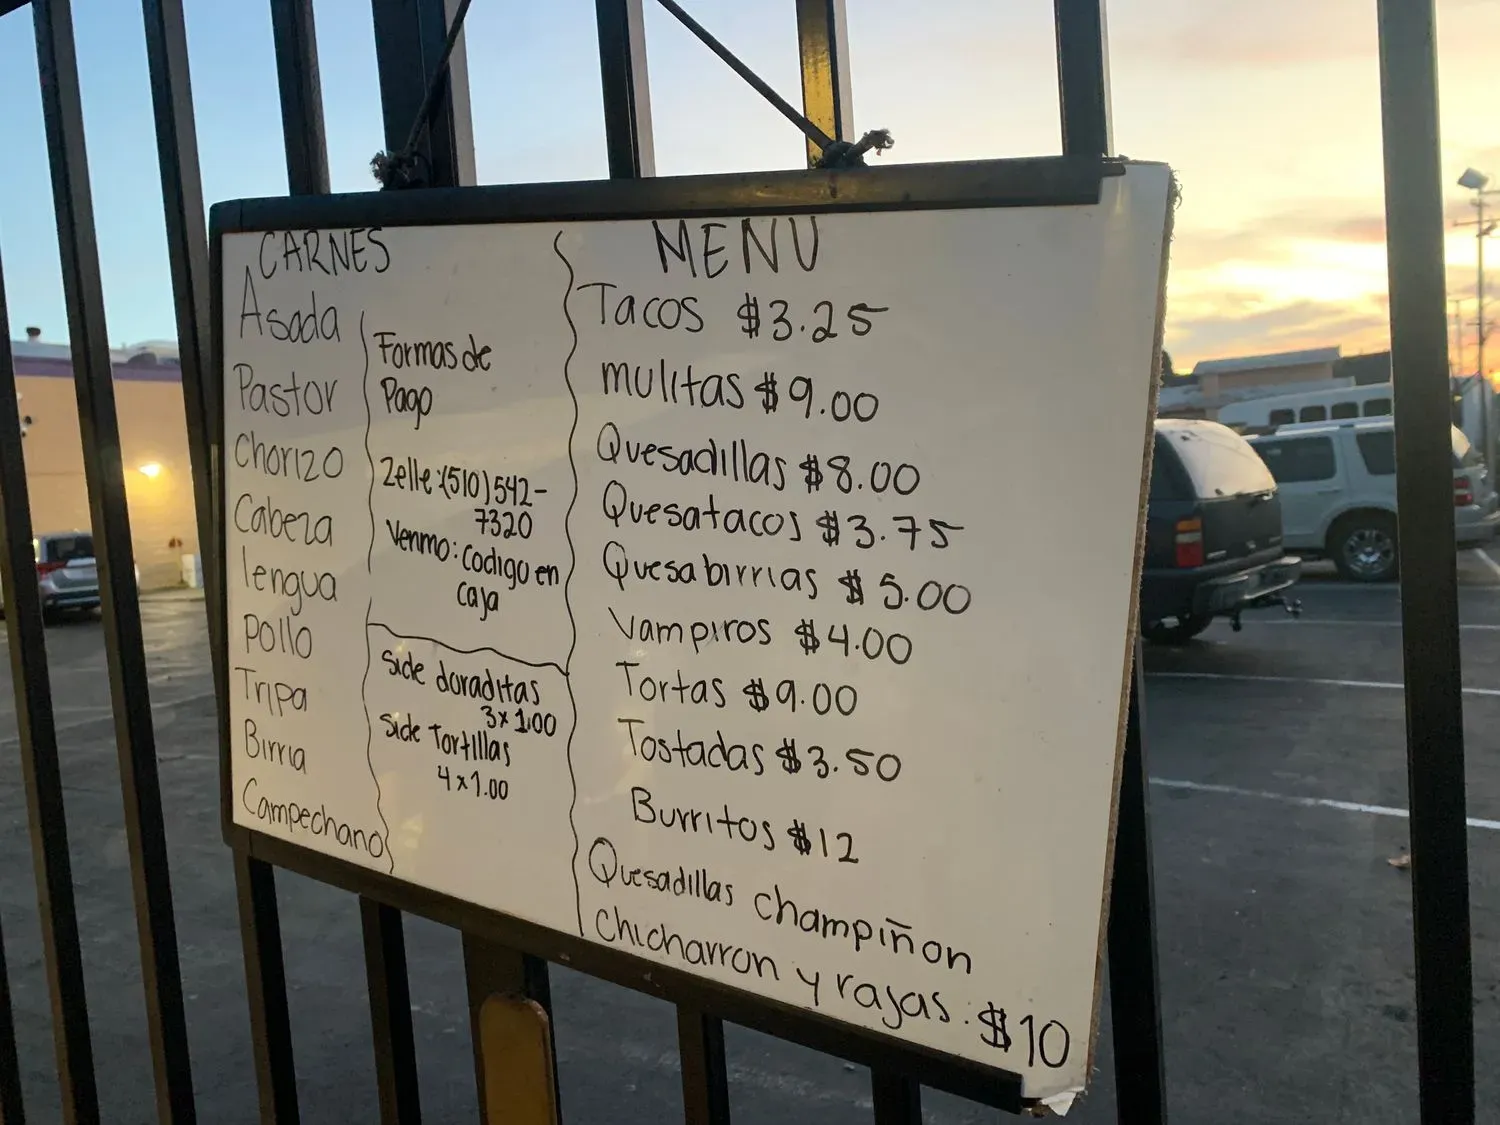 CARNES
Asada
Pastor
Chorizo
Cabeza
lengua
pollo
Tripa
Birria
Campechano
Formas de
Pago
Zelle:(510)542-
7320
Venmo: codigo en
caja
Side doraditas
3x1.00
Side Tortillas
4x1.00
MENU
Tacos $3.25
mulitas $9.00
Quesadillas $8.00
Quesatacos $3.75
Quesabirrias $5.00
Vampiros $4.00
Tortas $9.00
Tostadas $3.50
Burritos $12
Quesadillas champiñon
chicharron y rajas: $10